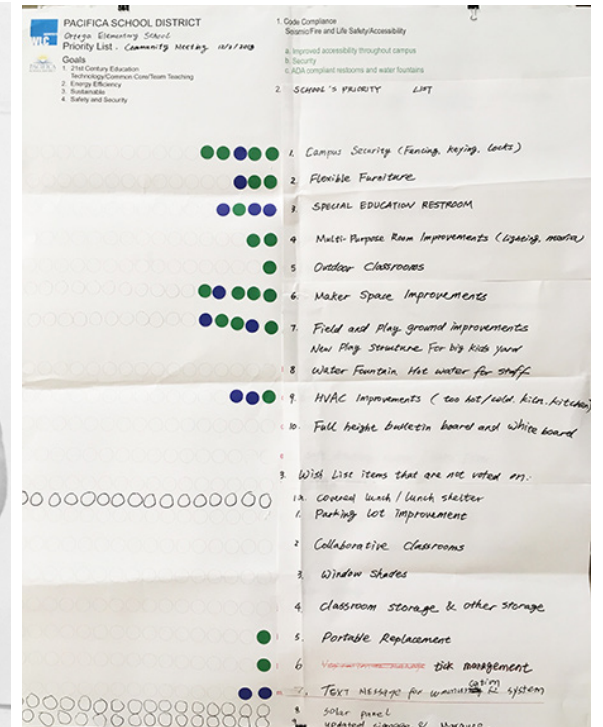 PACIFICA SCHOOL DISTRICT
Ortega Elementary School
Priority List - Community Meeting
Goals
1. 21st Century Education
Technology/Common Core/Team Teaching
2. Energy Efficiency
3. Sustainable
4. Safety and Security
WLC
1. Code Compliance
Seismic/Fire and Life Safety/Accessibility
a. Improved accessibility throughout campus
b. Security
c. ADA compliant restooms and water fountains
2. SCHOOL'S PRIORITY LIST
1. Campus Security (Fencing, Keying, locks)
2 Flexible Furniture
3. SPECIAL EDUCATION RESTROOM
4 Multi-Purpose Room Improvements (Lighting,
5 Outdoor Classrooms
6. Maker Space Improvements
7. Field and Play ground improvements
New Play Structure For big kids yard
8 Water Fountain Hot water for staff
9. HVAC Improvements (too hot/cold, kiln, kitchen)
10. Full height bulletin board and white board
3. Wish List items that are not voted on:
1a. covered lunch / lunch shelter
1. Parking Lot improvement
2 Collaborative Classrooms
3. Window Shades
4. Classroom storage & other storage
5. Portable Replacement
6 tick management
7. TEXT Message for system
8 solar panel
9 updated signage & Marquee